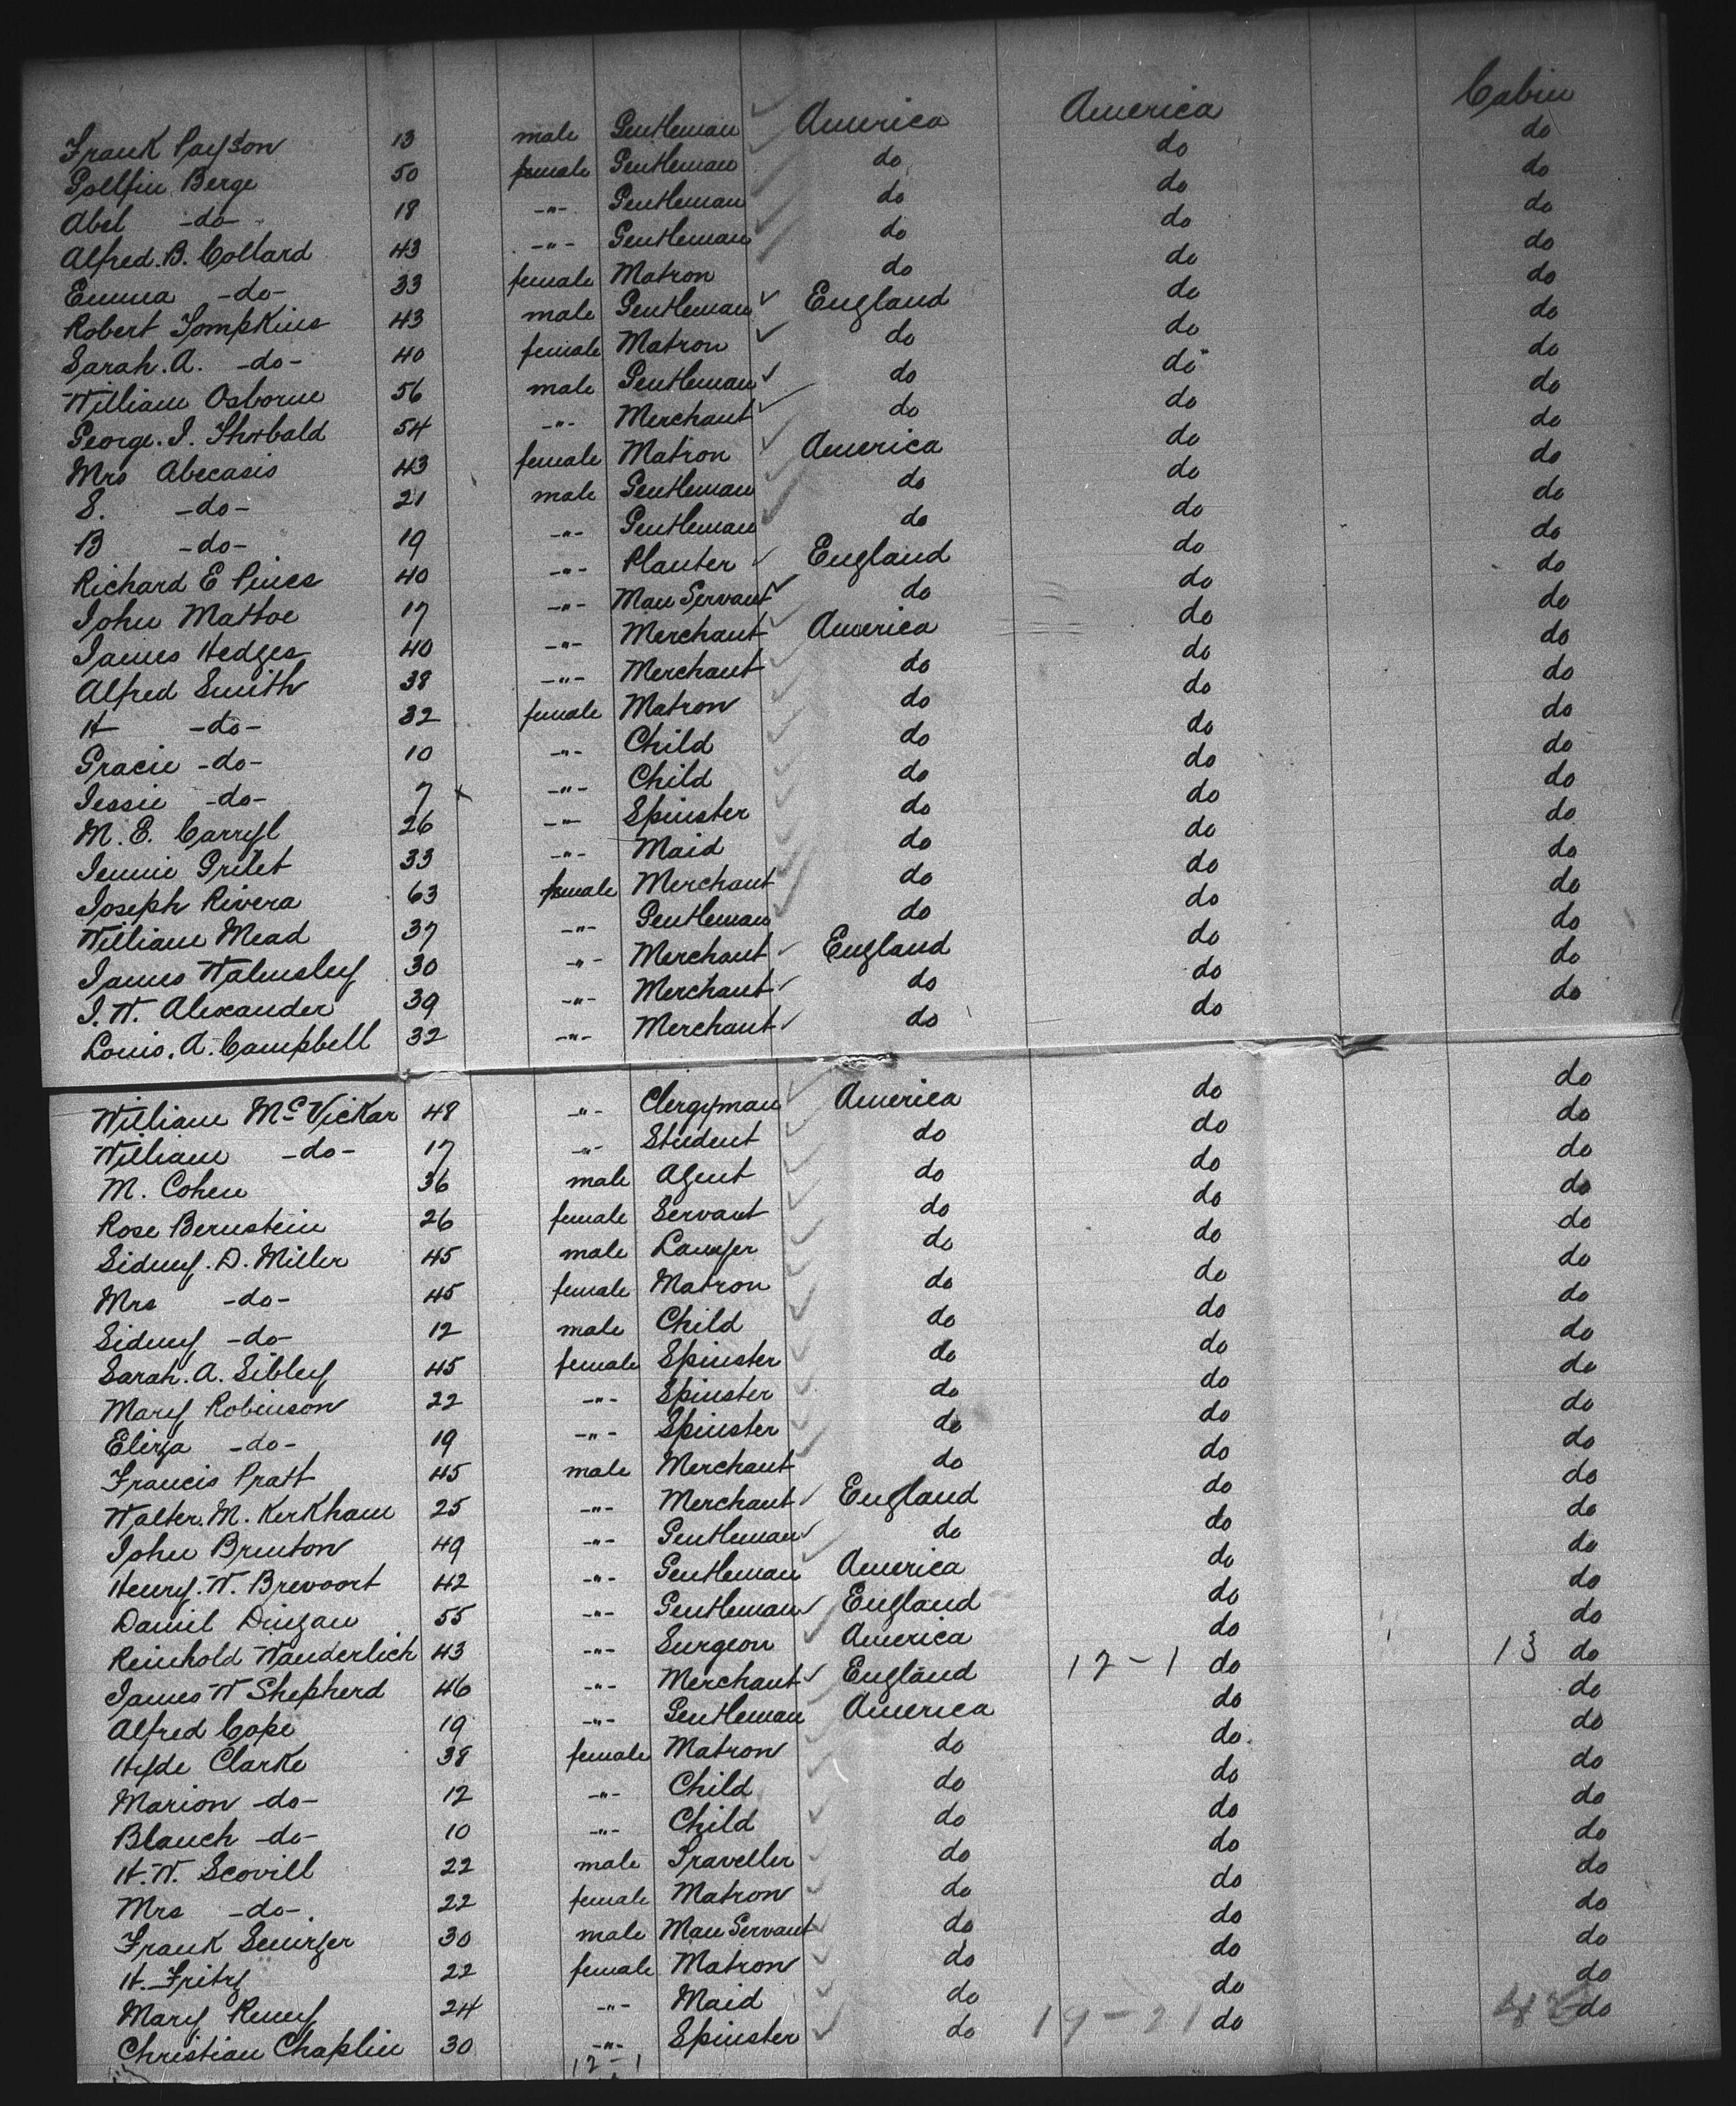 Cabin
Frank Payson 13 male Gentleman America America do
Gollfin Berge 50 female Gentleman do do do
Abel -do- 18 -"- Gentleman do do do
Alfred. B. Collard 43 -"- Gentleman do do do
Emma -do- 33 female Matron do do do
Robert Tompkins 43 male Gentleman England do do
Sarah. A. -do- 40 female Matron do do do
William Osborne 56 male Gentleman do do do
George. I. 54 -"- Merchant do do do
Mrs Abecasis 43 female Matron America do do
S. -do- 21 male Gentleman do do do
B -do- 19 -"- Gentleman do do do
Richard E Pines 40 -"- Planter England do do
John Mattoe 17 -"- Man Servant do do do
James Hedges 40 -"- Merchant America do do
Alfred Smith 38 -"- Merchant do do do
H -do- 32 female Matron do do do
Gracie -do- 10 -"- Child do do do
Jessie -do- 7 -"- Child do do do
M. E. Carryl 26 -"- Spinster do do do
Jennie Gritet 33 -"- Maid do do do
Joseph Rivera 63 female Merchant do do do
William Mead 37 -"- Gentleman do do do
James Walmsley 30 -"- Merchant England do do
J. W. Alexander 39 -"- Merchant do do do
Louis. A. Campbell 32 -"- Merchant do do do
William McVickar 48 -"- Clergyman America do do
William -do- 17 -"- Student do do do
M. Cohen 36 male Agent do do do
Rose Bernstein 26 female Servant do do do
Sidney. D. Miller 45 male Lawyer do do do
Mrs -do- 45 female Matron do do do
Sidney -do- 12 male Child do do do
Sarah. A. Sibley 45 female Spinster do do do
Mary Robinson 22 -"- Spinster do do do
Eliza -do- 19 -"- Spinster do do do
Francis Pratt 45 male Merchant do do do
Walter. M. Kerkham 25 -"- Merchant England do do
John Brenton 49 -"- Gentleman do do do
Henry. W. Brevoort 42 -"- Gentleman America do do
Daniel Dingan 55 -"- Gentleman England do do
Reinhold Wanderlich 43 -"- Surgeon America do do
James W Shepherd 46 -"- Merchant England 12-1 do 13 do
Alfred Cope 19 -"- Gentleman America do do
Hyde Clarke 38 female Matron do do do
Marion -do- 12 -"- Child do do do
Blanch -do- 10 -"- Child do do do
H. W. Scovill 22 male Traveller do do do
Mrs -do- 22 female Matron do do do
Frank 30 male Man Servant do do do
H. Fritz 22 female Matron do do do
Mary Reney 24 -"- Maid do do do
Christian Chaplin 30 -"- Spinster do 19-21 do do
12-1